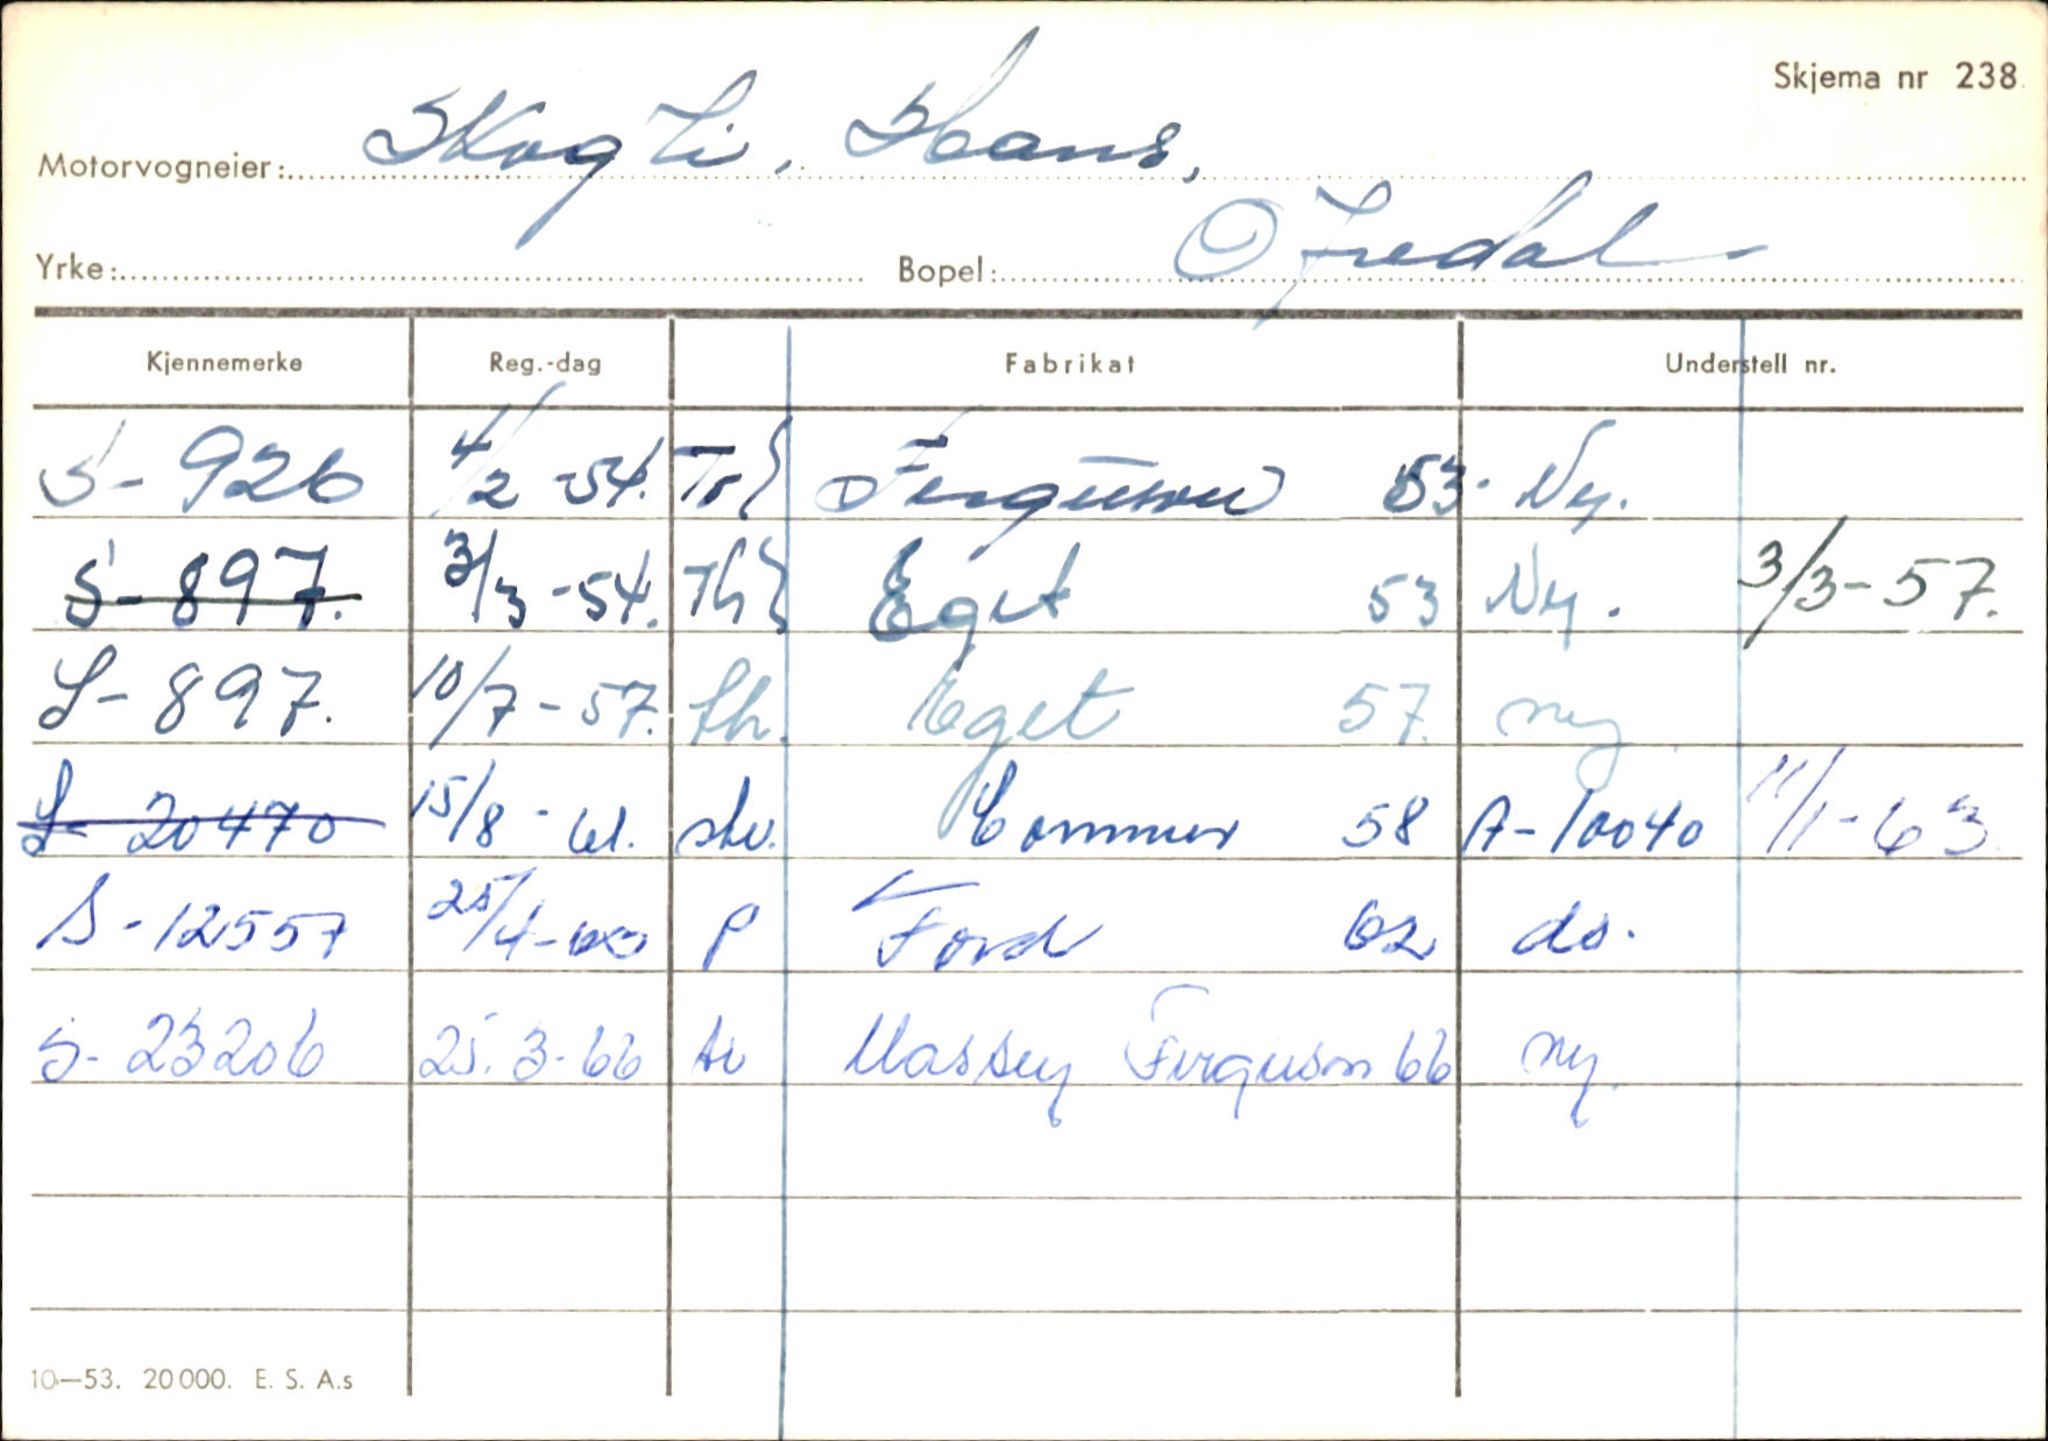 Skjema nr 238
Motorvogneier: Skogli, Hans,
Yrke: Bopel: Ofredal
Kjennemerke Reg.-dag Fabrikat Understell nr.
S-926 4/2-54. Tr Ferguson 53. Ny.
S-897. 3/3-54. Th Eget 53 Ny. 3/3-57.
S-897. 10/7-57. th. Eget 57. ny
S-20470 15/8-61. stv. Commer 58 A-10040 11/1-63
S-12557 25/4-63 P Ford 62 ds.
S-23206 25.3-66 tr Massey Ferguson 66 ny.
10-53. 20000. E. S. A.s